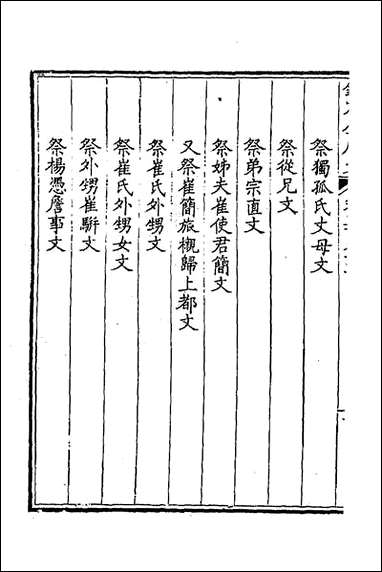 祭獨孤氏丈母文
祭從兄文
祭弟宗直文
祭姊夫崔使君簡文
又祭崔簡旅櫬歸上都文
祭崔氏外甥文
祭崔氏外甥女文
祭外甥崔駢文
祭楊憑詹事文